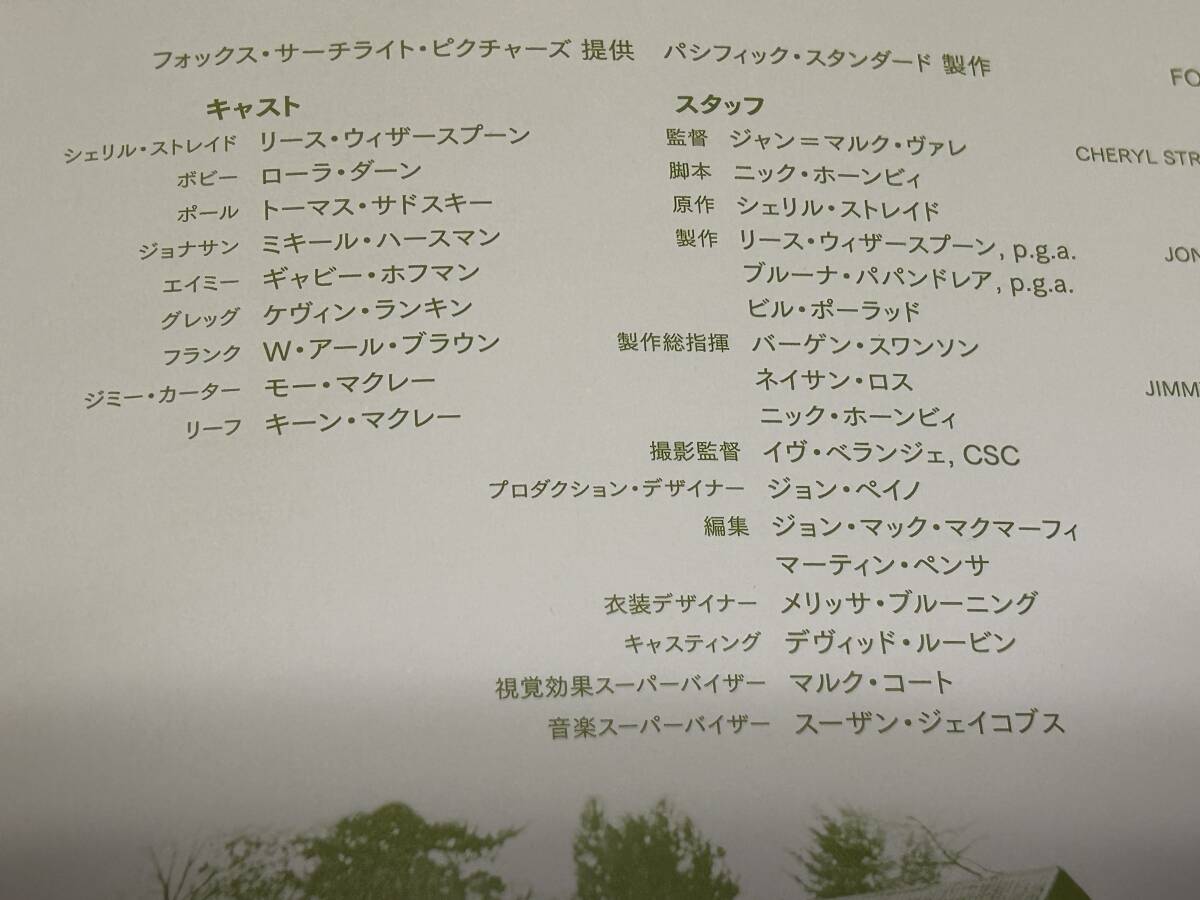 フォックス・サーチライト・ピクチャーズ 提供　パシフィック・スタンダード 製作
キャスト
シェリル・ストレイド　リース・ウィザースプーン
ボビー　ローラ・ダーン
ポール　トーマス・サドスキー
ジョナサン　ミキール・ハースマン
エイミー　ギャビー・ホフマン
グレッグ　ケヴィン・ランキン
フランク　W・アール・ブラウン
ジミー・カーター　モー・マクレー
リーフ　キーン・マクレー
スタッフ
監督　ジャン＝マルク・ヴァレ
脚本　ニック・ホーンビィ
原作　シェリル・ストレイド
製作　リース・ウィザースプーン, p.g.a.
ブルーナ・パパンドレア, p.g.a.
ビル・ポーラッド
製作総指揮　バーゲン・スワンソン
ネイサン・ロス
ニック・ホーンビィ
撮影監督　イヴ・ベランジェ, CSC
プロダクション・デザイナー　ジョン・ペイノ
編集　ジョン・マック・マクマーフィ
マーティン・ペンサ
衣装デザイナー　メリッサ・ブルーニング
キャスティング　デヴィッド・ルービン
視覚効果スーパーバイザー　マルク・コート
音楽スーパーバイザー　スーザン・ジェイコブス
FO
CHERYL STR
JON
JIMM